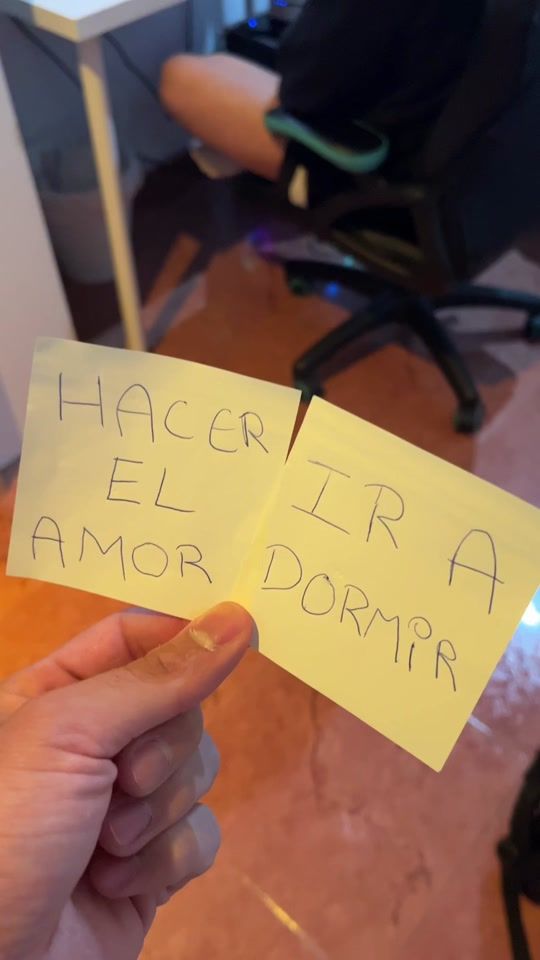 HACER
EL
AMOR
IR A
DORMiR